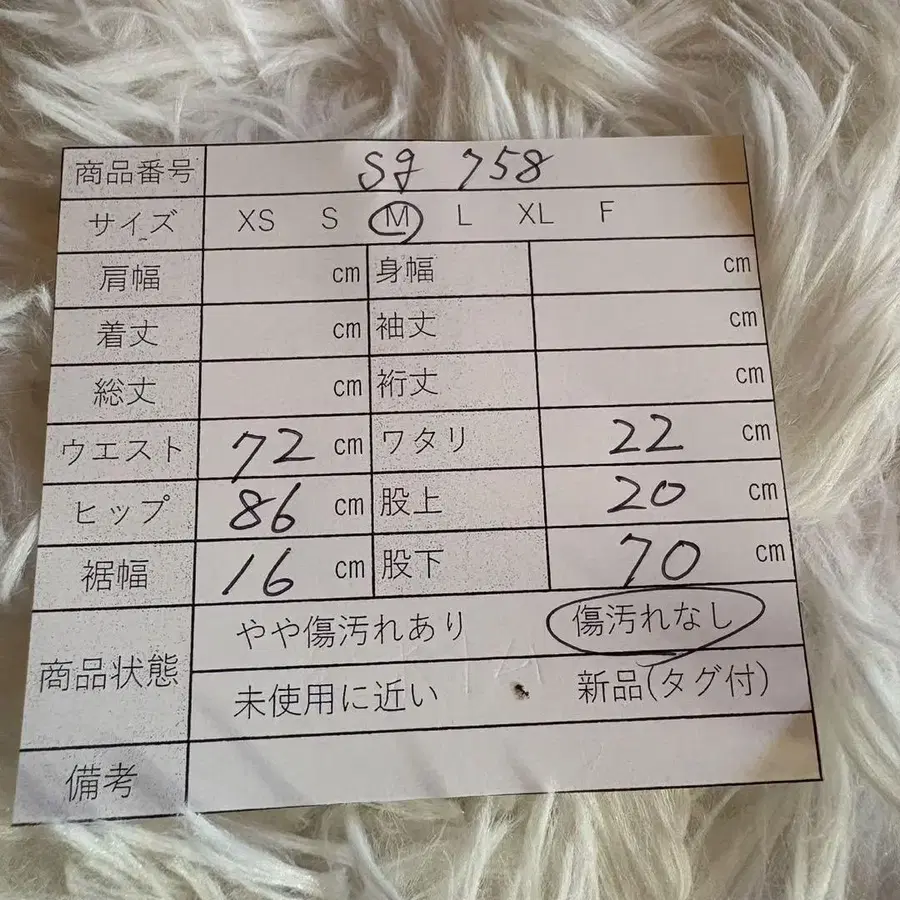 商品番号 sg 758
サイズ XS S M L XL F
肩幅 cm 身幅 cm
着丈 cm 袖丈 cm
総丈 cm 裄丈 cm
ウエスト 72 cm ワタリ 22 cm
ヒップ 86 cm 股上 20 cm
裾幅 16 cm 股下 70 cm
商品状態 やや傷汚れあり 傷汚れなし
未使用に近い 新品(タグ付)
備考